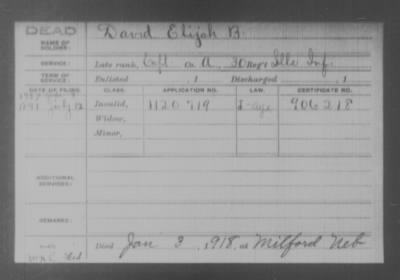 DEAD
NAME OF SOLDIER:
David Elijah B.
SERVICE:
Late rank, Capt Co. A, 30 Regt Ills Inf.
TERM OF SERVICE:
Enlisted , 1 Discharged , 1
DATE OF FILING. CLASS. APPLICATION NO. LAW. CERTIFICATE NO.
1891 July 12 Invalid, 1120 719 906218
Widow,
Minor,
ADDITIONAL SERVICES:
REMARKS:
Died Jan 3, 1918, at Milford Neb